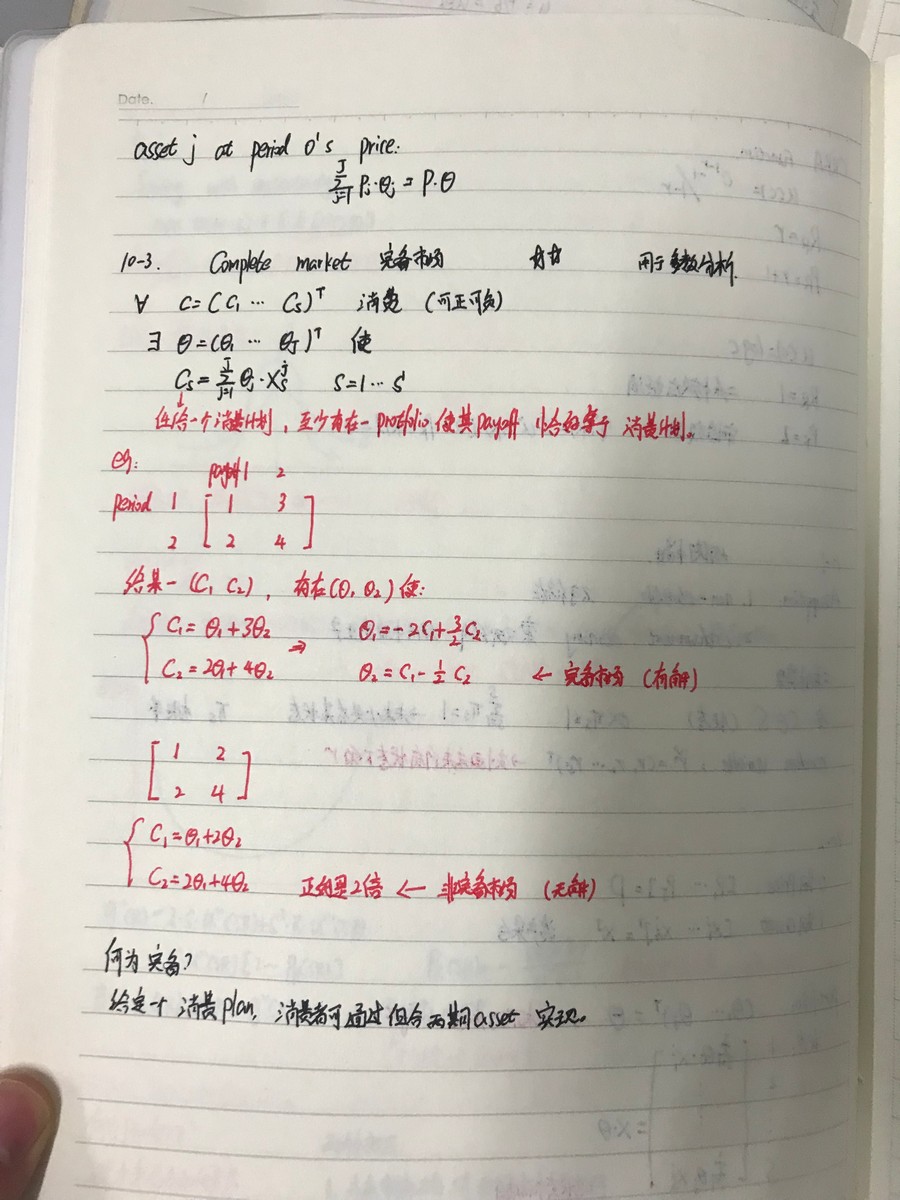 Date. /
asset j at period 0's price:
$\sum_{j=1}^{J} P_j \cdot \theta_j = P \cdot \theta$
10-3. Complete market 完备市场 用于多数分析.
∀ C=(C₁ ⋯ Cs)ᵀ 消费 (可正可负)
∃ θ=(θ₁ ⋯ θJ)ᵀ 使
$C_s = \sum_{j=1}^{J} \theta_j \cdot X_s^j$ S=1⋯S
任给一个消费计划, 至少存在一 protfolio 使其payoff 恰好等于 消费计划。
eg:
payoff 1 2
period 1 [ 1 3 ]
2 [ 2 4 ]
给某一 (C₁ C₂), 存在(θ₁ θ₂) 使:
{ C₁=θ₁+3θ₂ ⇒ θ₁=-2C₁+3/2 C₂
C₂=2θ₁+4θ₂ θ₂=C₁-1/2 C₂ ← 完备市场 (有解)
[ 1 2 ]
[ 2 4 ]
{ C₁=θ₁+2θ₂
C₂=2θ₁+4θ₂ 正好是2倍 ← 非完备市场 (无解)
何为完备?
给定一个消费plan, 消费者可通过组合两期asset 实现。